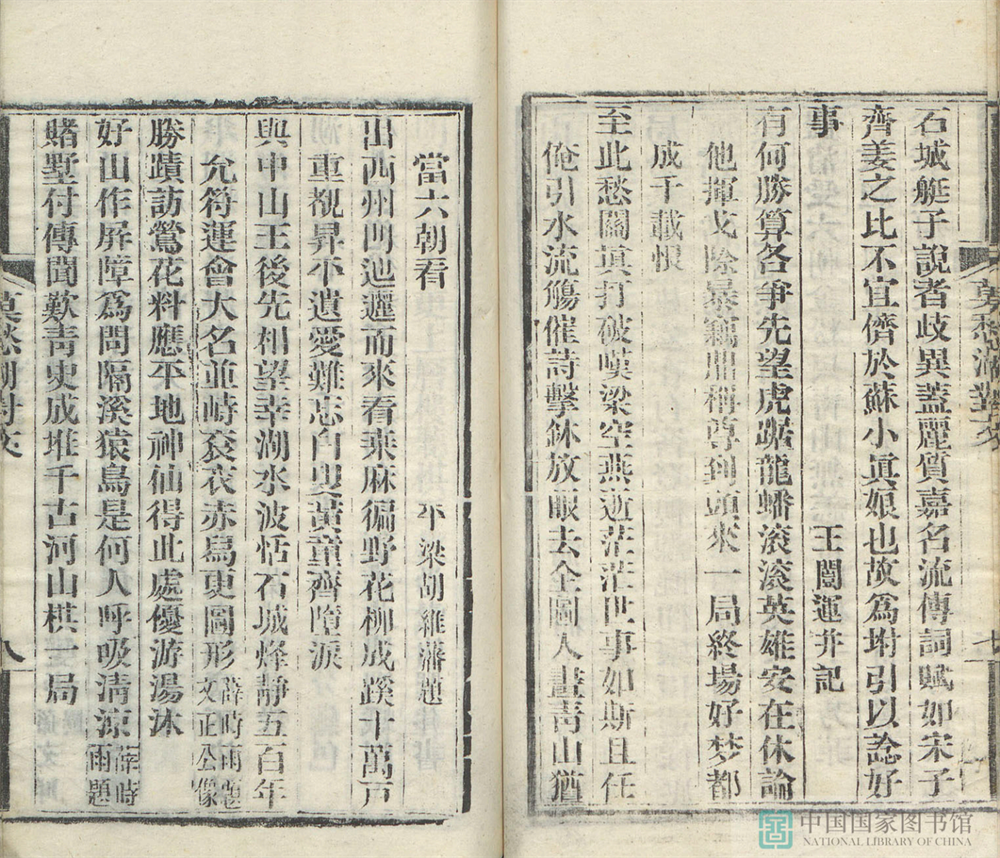 石城艇子說者歧異蓋麗質嘉名流傳詞賦如宋子
齊姜之比不宜儕於蘇小眞娘也故爲坿引以諗好
事
王闓運幷記
有何勝算各爭先望虎踞龍蟠滾滾英雄安在休論
他揮戈除暴竊鼎稱尊到頭來一局終場好梦都
成千載恨
至此愁關眞打破嘆梁空燕逝茫茫世事如斯且任
俺引水流觴催詩擊鉢放眼去全圖人畫靑山猶
當六朝看
平梁胡維藩題
出西州門迆邐而來看桑麻徧野花柳成蹊十萬戸
重覩昇平遺愛難忘白叟黃童齊墮淚
與中山王後先相望幸湖水波恬石城烽靜五百年
允符運會大名並峙袞衣赤舄更圖形
薛時雨題
文正公像
勝蹟訪鶯花料應平地神仙得此處優游湯沐
好山作屏障爲問隔溪猿鳥是何人呼吸淸涼
薛時
雨題
賭墅付傳聞歎靑史成堆千古河山棋一局
莫愁湖對文
七
莫愁湖對文
八
中国国家图书馆
NATIONAL LIBRARY OF CHINA